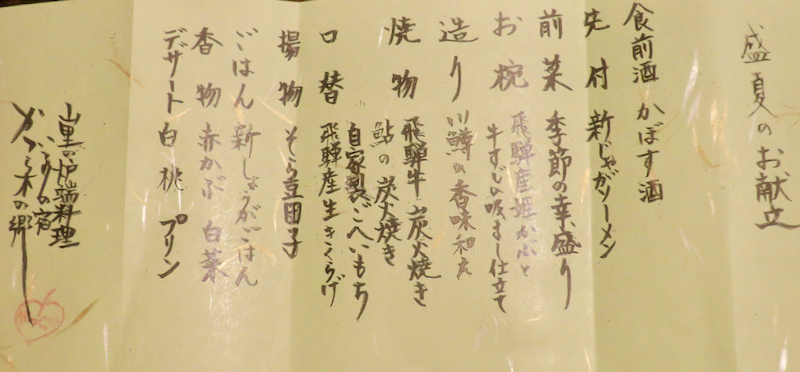 盛夏のお献立
食前酒 かぼす酒
先付 新じゃがソーメン
前菜 季節の幸盛り
お椀 飛騨産姫かぶと
牛すじの吸まし仕立て
造り 川鱒の香味和え
焼物 飛騨牛 炭火焼き
鮎の炭火焼き
口替 自家製ごへいもち
飛騨産生きくらげ
揚物 そら豆団子
ごはん 新しょうがごはん
香物 赤かぶ 白菜
デザート 白桃 プリン
山里の炉端料理
いろりの宿
かつら木の郷